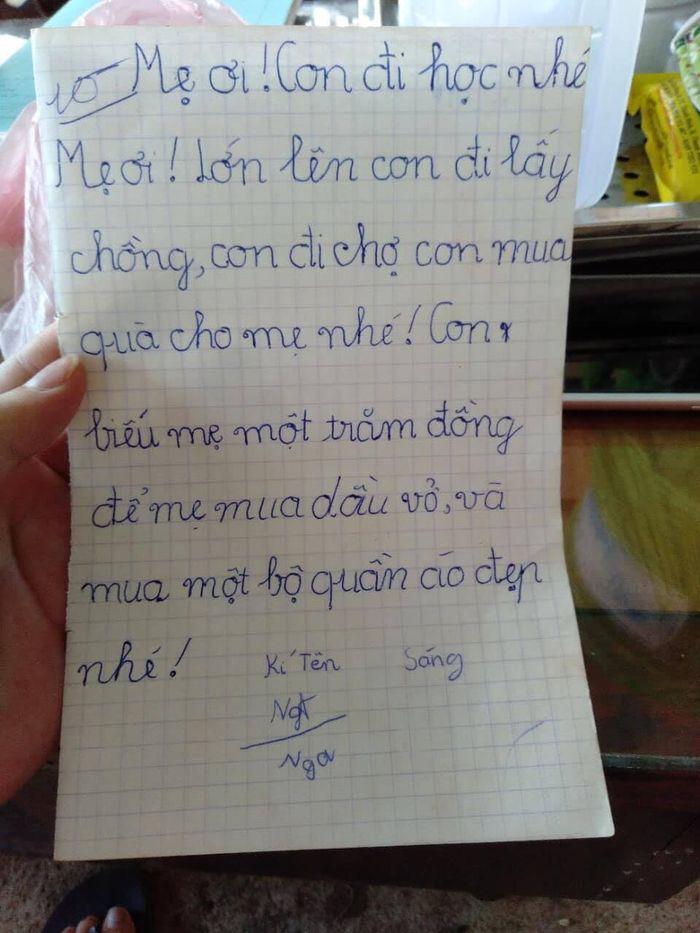 10 Mẹ ơi! Con đi học nhé
Mẹ ơi! Lớn lên con đi lấy
chồng, con đi chợ con mua
quà cho mẹ nhé! Con
biếu mẹ một trăm đồng
để mẹ mua dầu vỏ, và
mua một bộ quần áo đẹp
nhé! Kí Tên Sáng
Nga